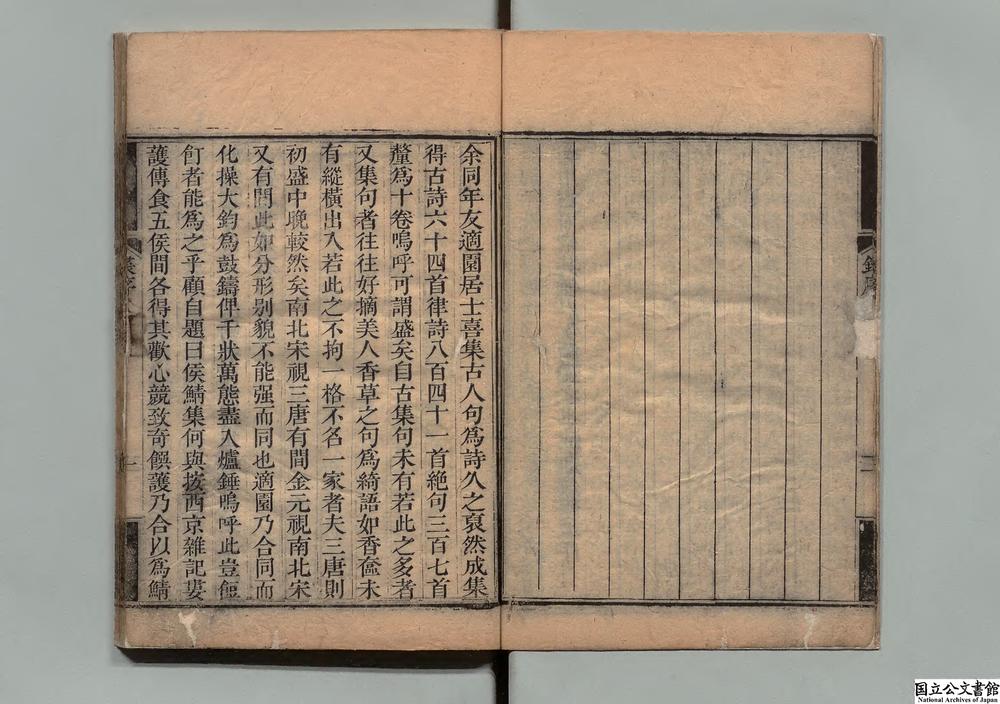 余同年友適園居士喜集古人句爲詩久之裒然成集
得古詩六十四首律詩八百四十一首絶句三百七首
釐爲十卷嗚呼可謂盛矣自古集句未有若此之多者
又集句者往往好摘美人香草之句爲綺語如香奩未
有縱橫出入若此之不拘一格不名一家者夫三唐則
初盛中晚較然矣南北宋視三唐有間金元視南北宋
又有間此如分形别貌不能强而同也適園乃合同而
化操大鈞爲鼓鑄俾千狀萬態盡入爐錘嗚呼此豈餖
飣者能爲之乎顧自題曰侯鯖集何與按西京雜記婁
護傳食五侯間各得其歡心競致奇饌護乃合以爲鯖
序
一
国立公文書館
National Archives of Japan